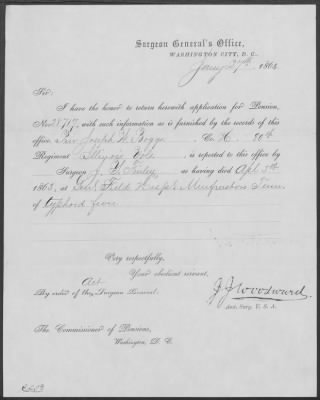 Surgeon General's Office,
WASHINGTON CITY, D. C.
Jany 27th, 1864
Sir:
I have the honor to return herewith application for Pension,
No. 28717, with such information as is furnished by the records of this
office. Joseph W. Boggs Co. H. 30th
Regiment Illinois Vols. is reported to this office by
Surgeon J. as having died Apl 5th
1863, at Field Hospl Murfreesboro Tenn.
of typhoid fever
Very respectfully,
Your obedient servant,
Act
By order of the Surgeon General:
J. J. Woodward.
Ass. Surg. U. S. A.
The Commissioner of Pensions,
Washington, D. C.